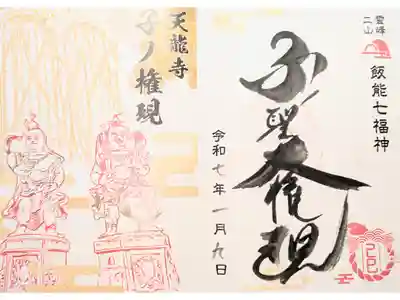 霊峰
二山
飯能七福神
子聖大権現
令和七年一月九日
天龍寺
子ノ権現